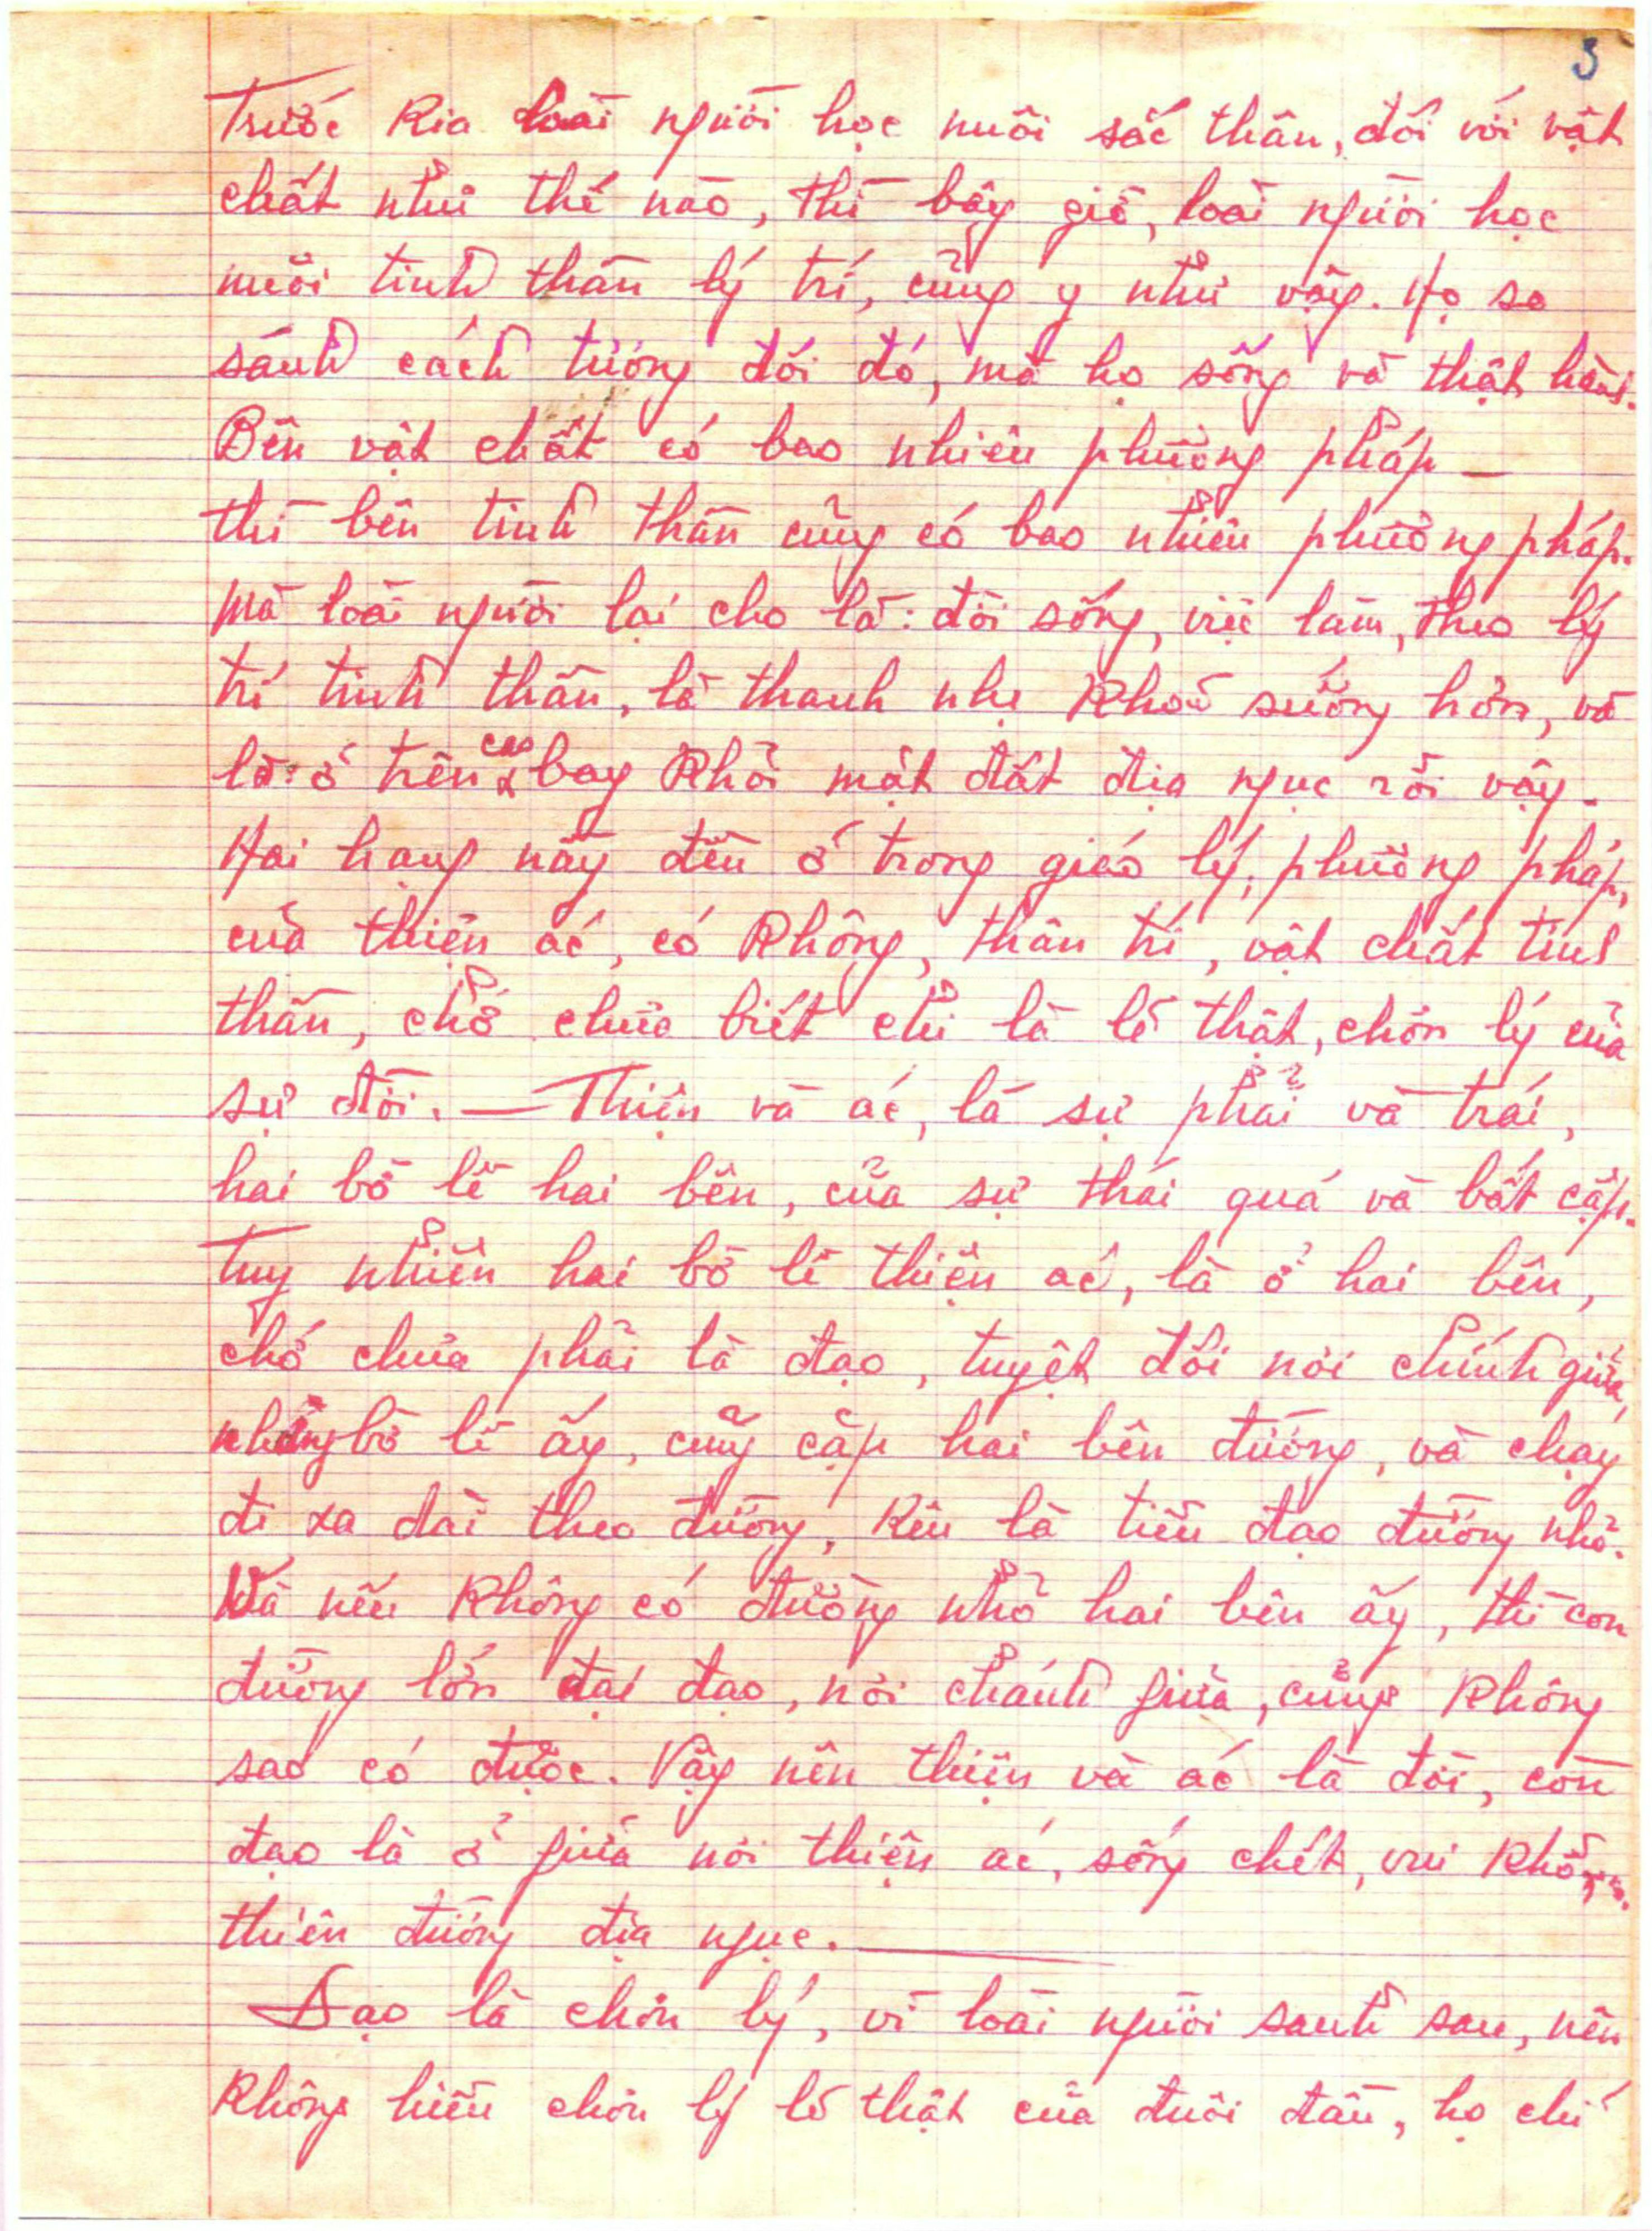 3
Trước kia loài người học nuôi sắc thân, đối với vật
chất như thế nào, thì bây giờ, loài người học
nuôi tinh thần lý trí, cũng y như vậy. Họ so
sánh cách tương đối đó, mà họ sống và thật hành.
Bên vật chất có bao nhiêu phương pháp —
thì bên tinh thần cũng có bao nhiêu phương pháp.
Mà loài người lại cho là: đời sống, việc làm, theo lý
trí tinh thần, là thanh nhẹ khoẻ sướng hơn, và
là: ở trên cao bay khỏi mặt đất địa ngục rồi vậy.
Hai hạng nầy đều ở trong giáo lý, phương pháp,
của thiện ác, có không, thân trí, vật chất tinh
thần, chớ chưa biết chi là lẽ thật, chơn lý của
sự đời. — Thiện và ác, là sự phải và trái,
hai bờ lề hai bên, của sự thái quá và bất cập.
Tuy nhiên hai bờ lề thiện ác, là ở hai bên,
chớ chưa phải là đạo, tuyệt đối nơi chính giữa,
nhưng bờ lề ấy, cũng cặp hai bên đường, và chạy
đi xa dài theo đường, kêu là tiểu đạo đường nhỏ.
Và nếu không có đường nhỏ hai bên ấy, thì con
đường lớn đại đạo, nơi chánh giữa, cũng không
sao có được. Vậy nên thiện và ác là đời, còn
đạo là ở giữa nơi thiện ác, sống chết, vui khổ,
thiên đường địa ngục. —
Đạo là chơn lý, vì loài người sanh sau, nên
không hiểu chơn lý lẽ thật của đuôi đầu, họ chỉ